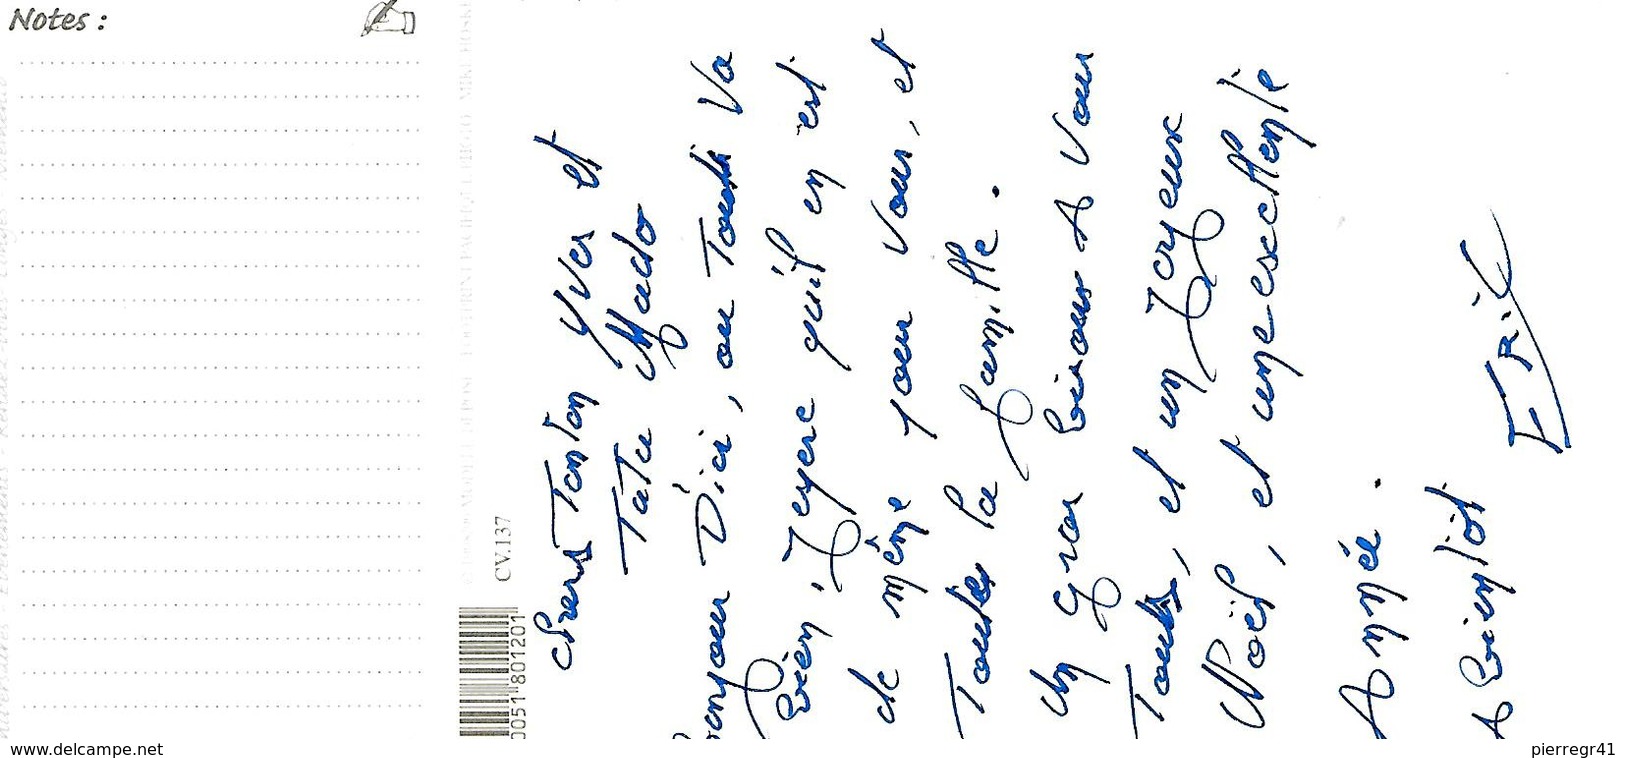 Notes :
CV.137
0051 801201
chers Tonton Yves et
Tata Mado
Bonjour D'ici, ou Toutti Va
bien, J'espère qu'il en est
de même pour Vous, et
Toutes la famille.
Un gros bisous A Vous
Toutes, et un Joyeux
Noël, et une escellente
Année.
A bientôt ERiC
www.delcampe.net
pierregr41